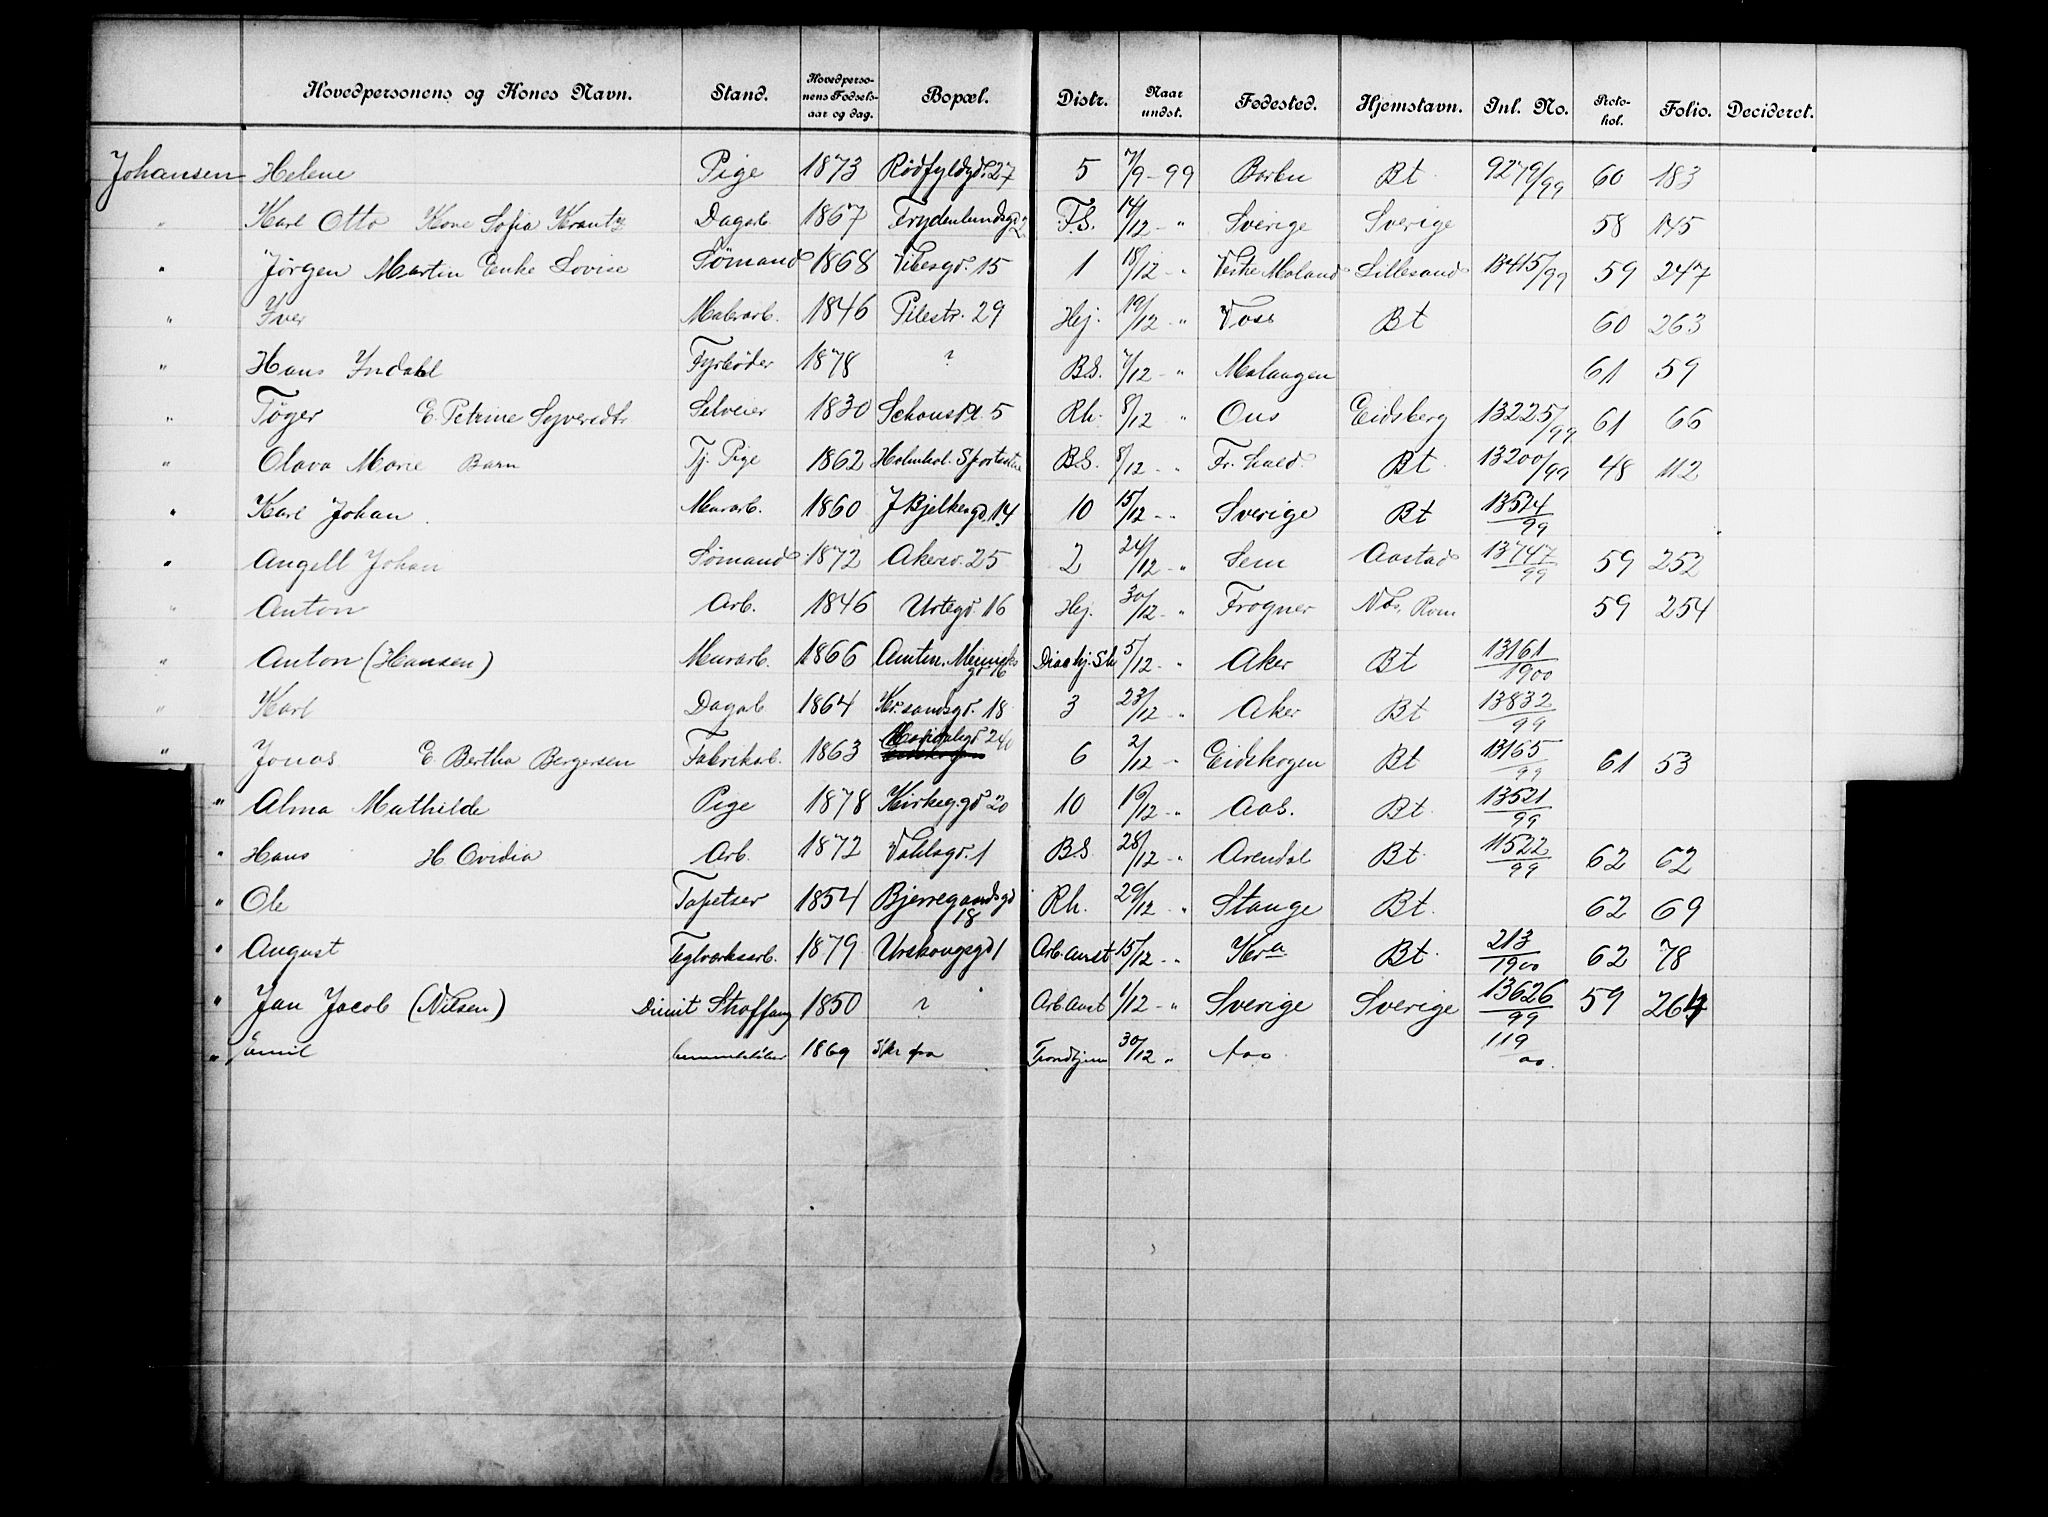 Hovedpersonens og Kones Navn. Stand. Hovedperso-nens Fødsels-aar og dag. Bopæl. Distr. Naar undst. Fødested. Hjemstavn. Inl. No. Proto-kol. Folio. Decideret.
Johansen Helene Pige 1873 Rødfyldgd. 27 5 7/9-99 Barbu Bt 9279/99 60 183
" Karl Otto Kone Sofia Krantz Dagarb 1867 Frydenlundsgd 2 F.S. 14/12 - " Sverige Sverige 58 145
" Jørgen Martin Enke Lovise Sømand 1868 Vibesgd. 15 1 18/12 - " Vestre Moland Lillesand 13415/99 59 247
" Iver Malerarb. 1846 Pilestr. 29 Hej. 19/12 - " Voss Bt 60 263
" Hans Indahl Fyrbøder 1878 ? B.S. 7/12 - " Malangen 61 59
" Tøger E. Petrine Syverdtr Selveier 1830 Schous Pl. 5 Rh. 8/12 " Ous Eidsberg 13225/99 61 66
" Olava Marie Barn Tj. Pige 1862 Holmkol. B.S. 8/12 - " Fr.hald. Bt 13200/99 48 112
" Karl Johan. Murarb. 1860 J Bjelkesgd. 14 10 15/12 - " Sverige Bt 13524/99
" Angell Johan Sømand 1872 Akersv. 25 2 24/12 " Sem Aastad 13747/99 59 252
" Anton Arb. 1846 Urtegd 16 Hej. 30/12 - " Frogner Nes, Rom 59 254
" Anton (Hansen) Murarb. 1866 Amtm. Meinichs gd 16 5/12 - " Aker Bt 13161/1900
" Karl Dagarb 1864 Kr.sandsgd. 18 3 23/12 - " Aker Bt 13832/99
" Jonas E. Bertha Bergersen Fabrikarb. 1863 240 6 2/12 " Eidskogen Bt 13165/99 61 53
" Alma Mathilde Pige 1878 Kirkeg.gd 20 10 16/12 - " Aas. Bt 13521/99
" Hans H Ovidia Arb. 1872 Vahlsgd. 1 B.S. 28/12 - " Arendal Bt 11522/99 62 62
" Ole Tapetser 1854 Bjerregaardsgd 18 Rh. 29/12 - " Stange Bt. 62 69
" August Teglværksarb. 1879 Urskougsgd 1 Arb. anst 15/12 - " Kra Bt. 213/1900 62 78
" Jan Jacob (Nilsen) Dimit Straffang 1850 ? Arb Anst 1/12 - " Sverige Sverige 13626/99 59 264
" Emil 1869 Trondhjem 30/12 " 119/00.